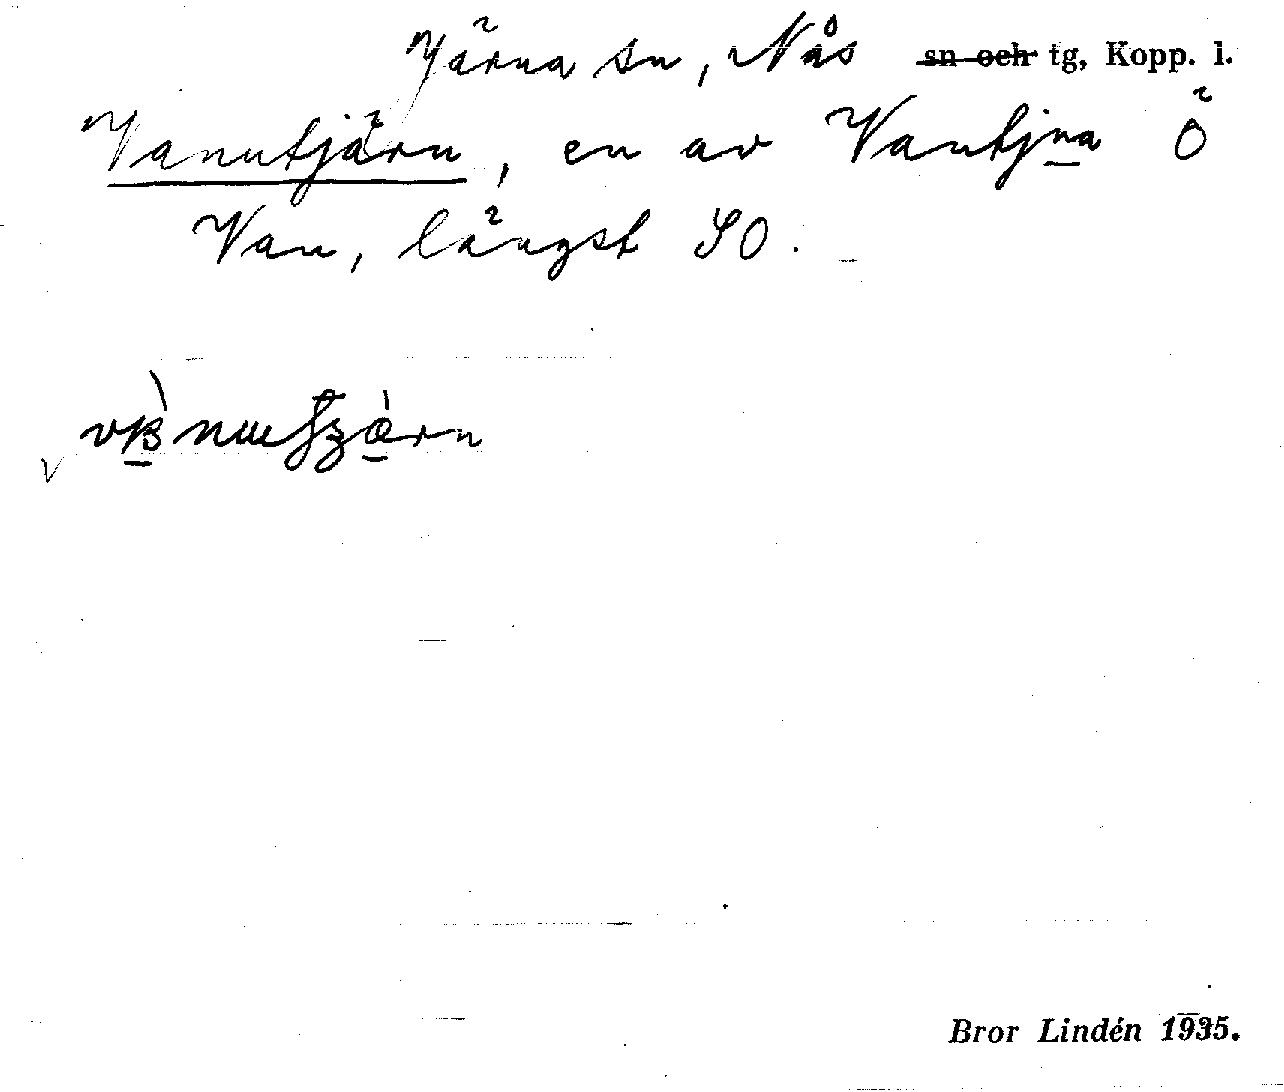 Järna sn, Nås sn och tg, Kopp. l.
Vanutjärn, en av Vantjna Ö
Van, längst SO.
Bror Lindén 1935.